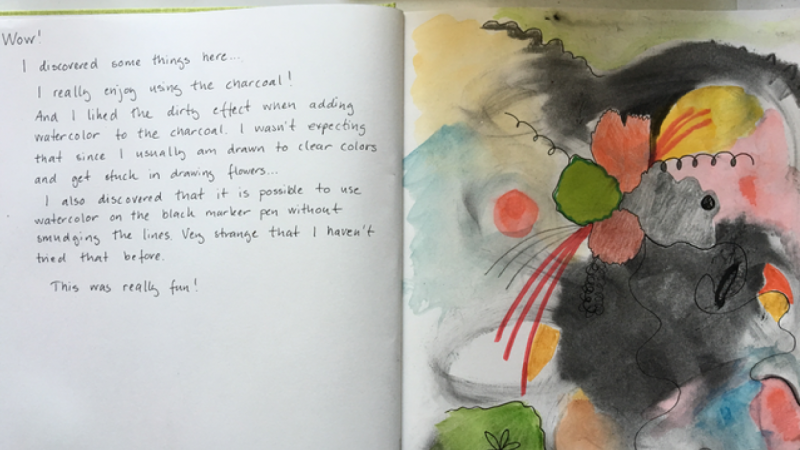 Wow!
I discovered some things here...
I really enjoy using the charcoal!
And I liked the dirty effect when adding
watercolor to the charcoal. I wasn't expecting
that since I usually am drawn to clear colors
and get stuck in drawing flowers...
I also discovered that it is possible to use
watercolor on the black marker pen without
smudging the lines. Very strange that I haven't
tried that before.
This was really fun!